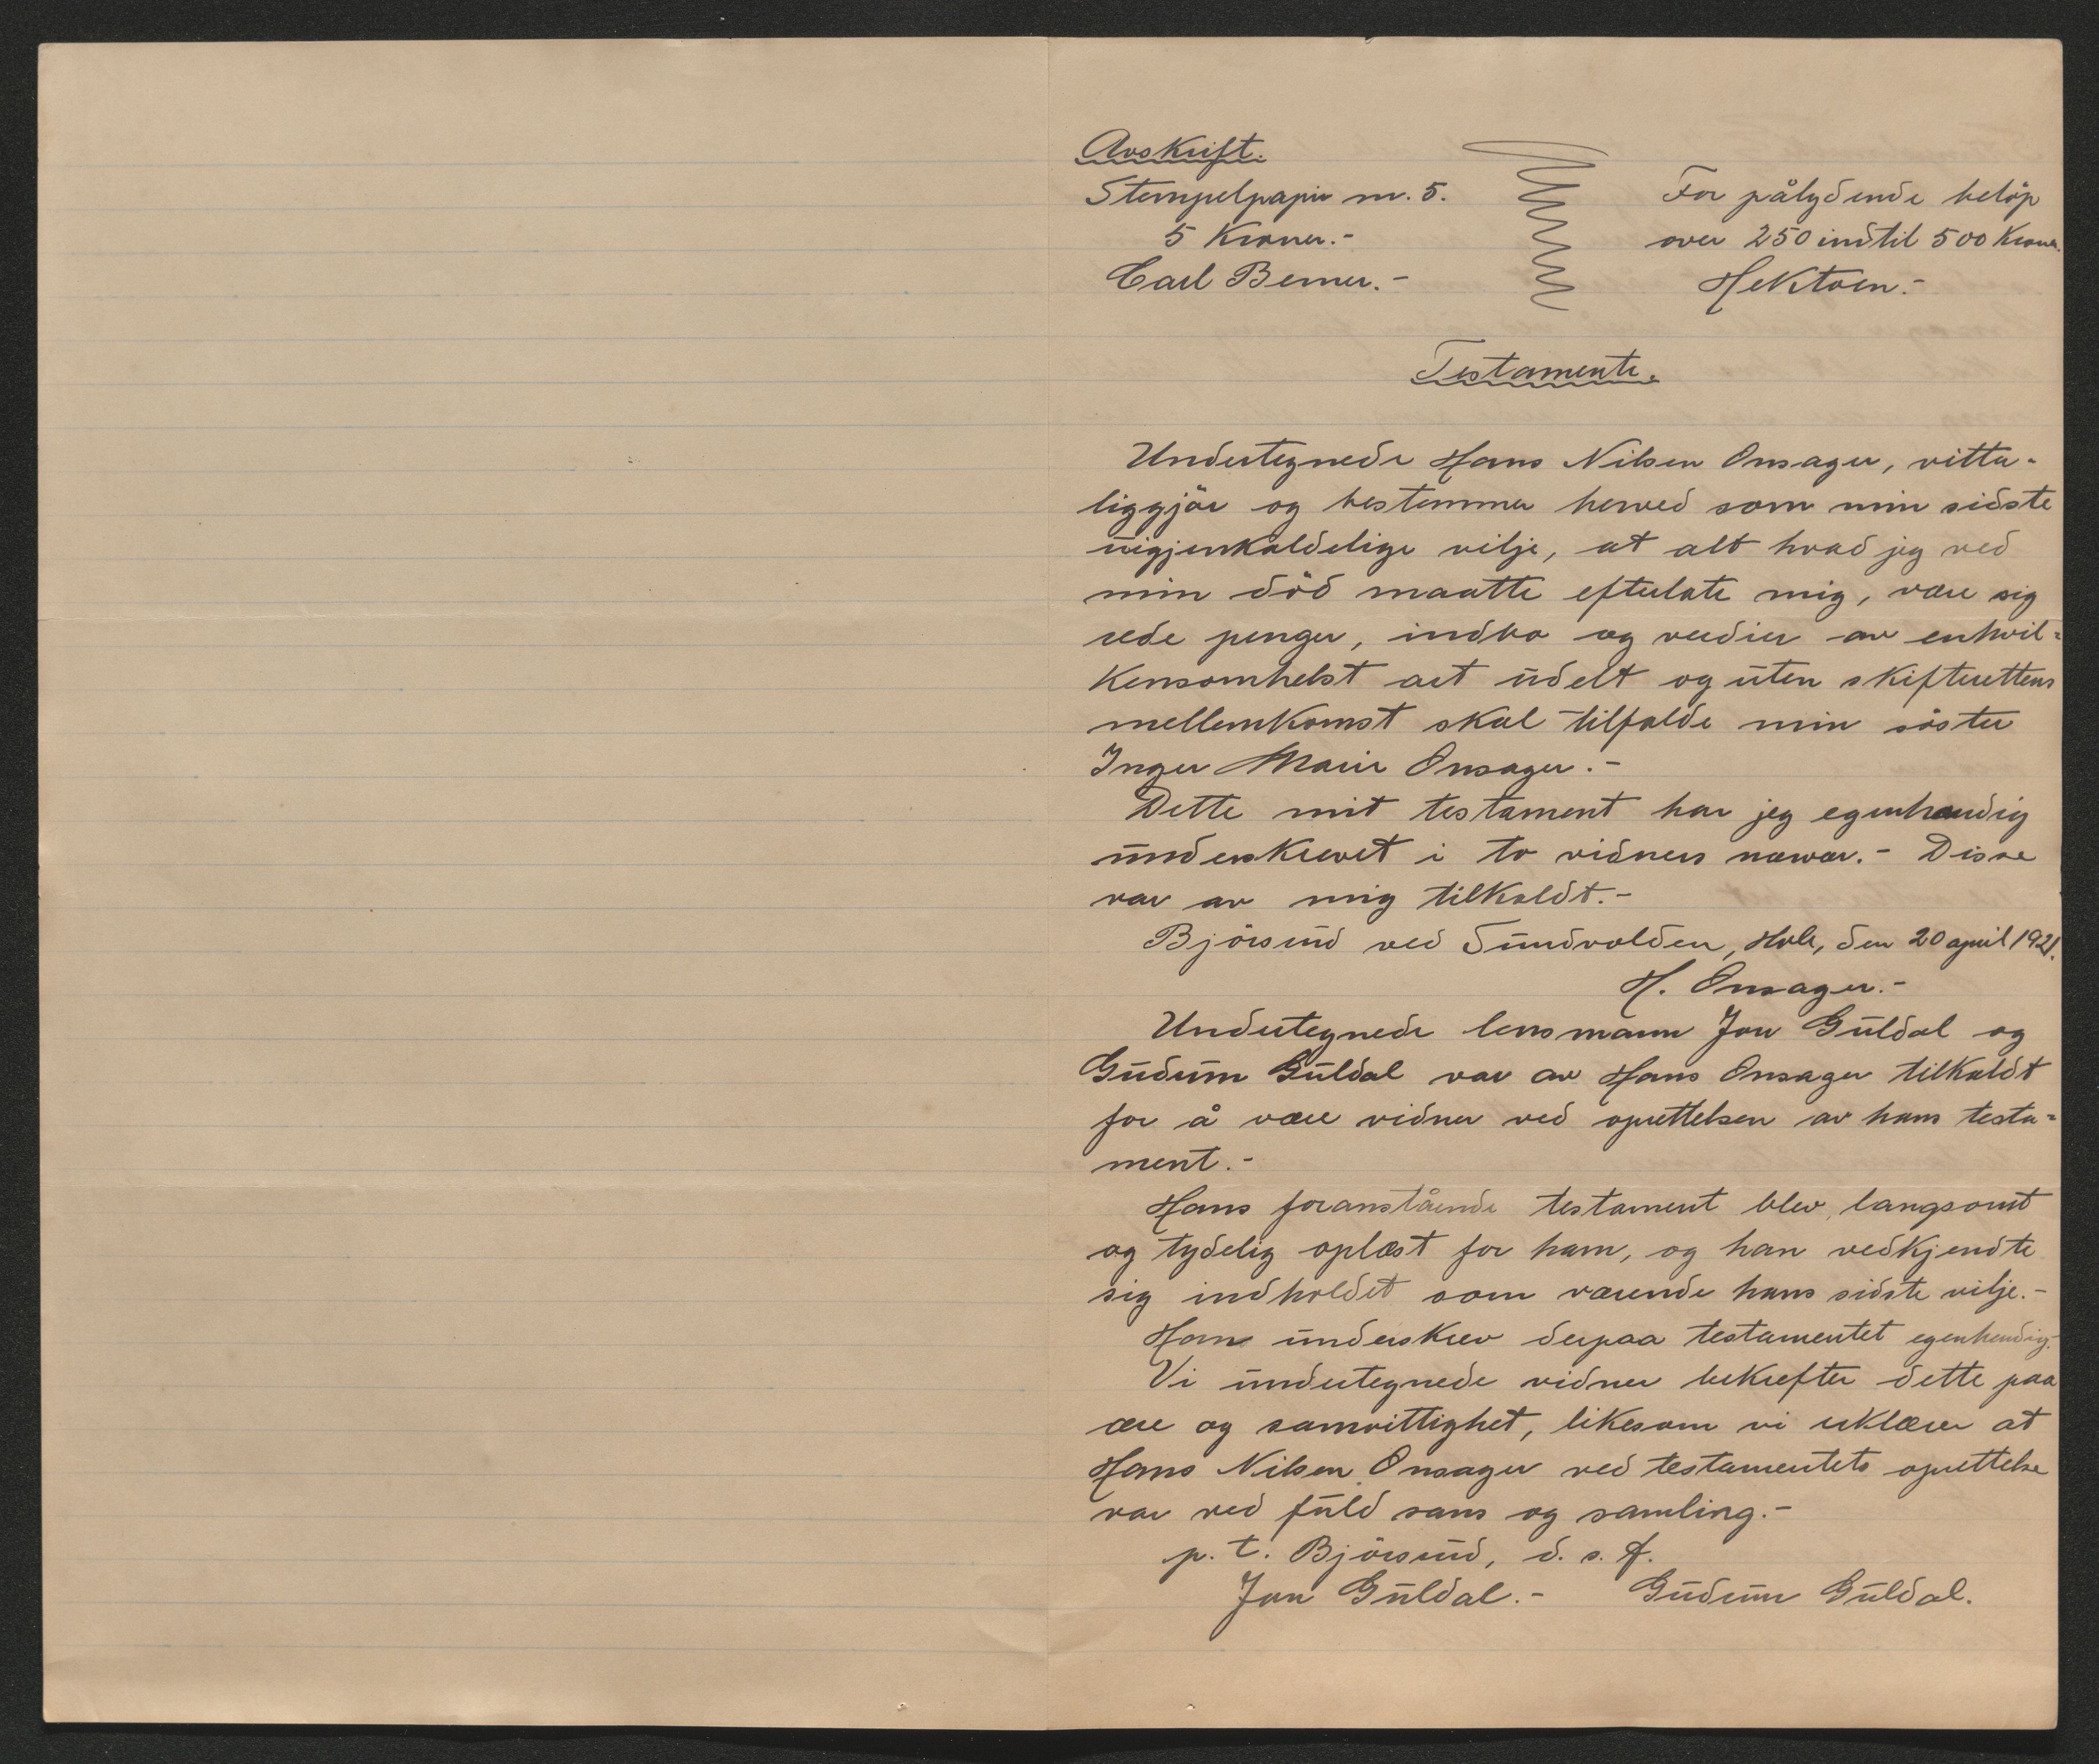 Avskrift.
Stempelpapir nr. 5.
5 Kroner.-
Carl Berner.-
For pålydende beløp
over 250 indtil 500 Kroner.
Hektoen.-
Testamente.
Undertegnede Hans Nilsen Onsager, vitta-
liggjör og bestemmer herved som min sidste
uigjenkaldelige vilje, at alt hvad jeg ved
min död maatte efterlate mig, være sig
rede penger, indbo og verdier av enhvil-
kensomhelst art udelt og uten skifterettens
mellemkomst skal tilfalde min söster
Inger Marie Onsager.-
Dette mit testament har jeg egenhændig
underskrevet i to vidners nærvær.- Disse
var av mig tilkaldt.-
Björsund ved Sundvolden, Hole, den 20 april 1921.
H. Onsager.-
Undertegnede lensmann Jon Guldal og
Gudrun Guldal var av Hans Onsager tilkaldt
for å være vidner ved oprettelsen av hans testa-
ment.-
Hans foranstående testament blev langsomt
og tydelig oplæst for ham, og han vedkjendte
sig indholdet som værende hans sidste vilje.-
Hans underskrev derpaa testamentet egenhendig.
Vi undertegnede vidner bekrefter dette paa
ære og samvittighet, likesom vi erklærer at
Hans Nilsen Onsager ved testamentets oprettelse
var ved fuld sans og samling.-
p. t. Björsund, d. s. f.
Jon Guldal.- Gudrun Guldal.